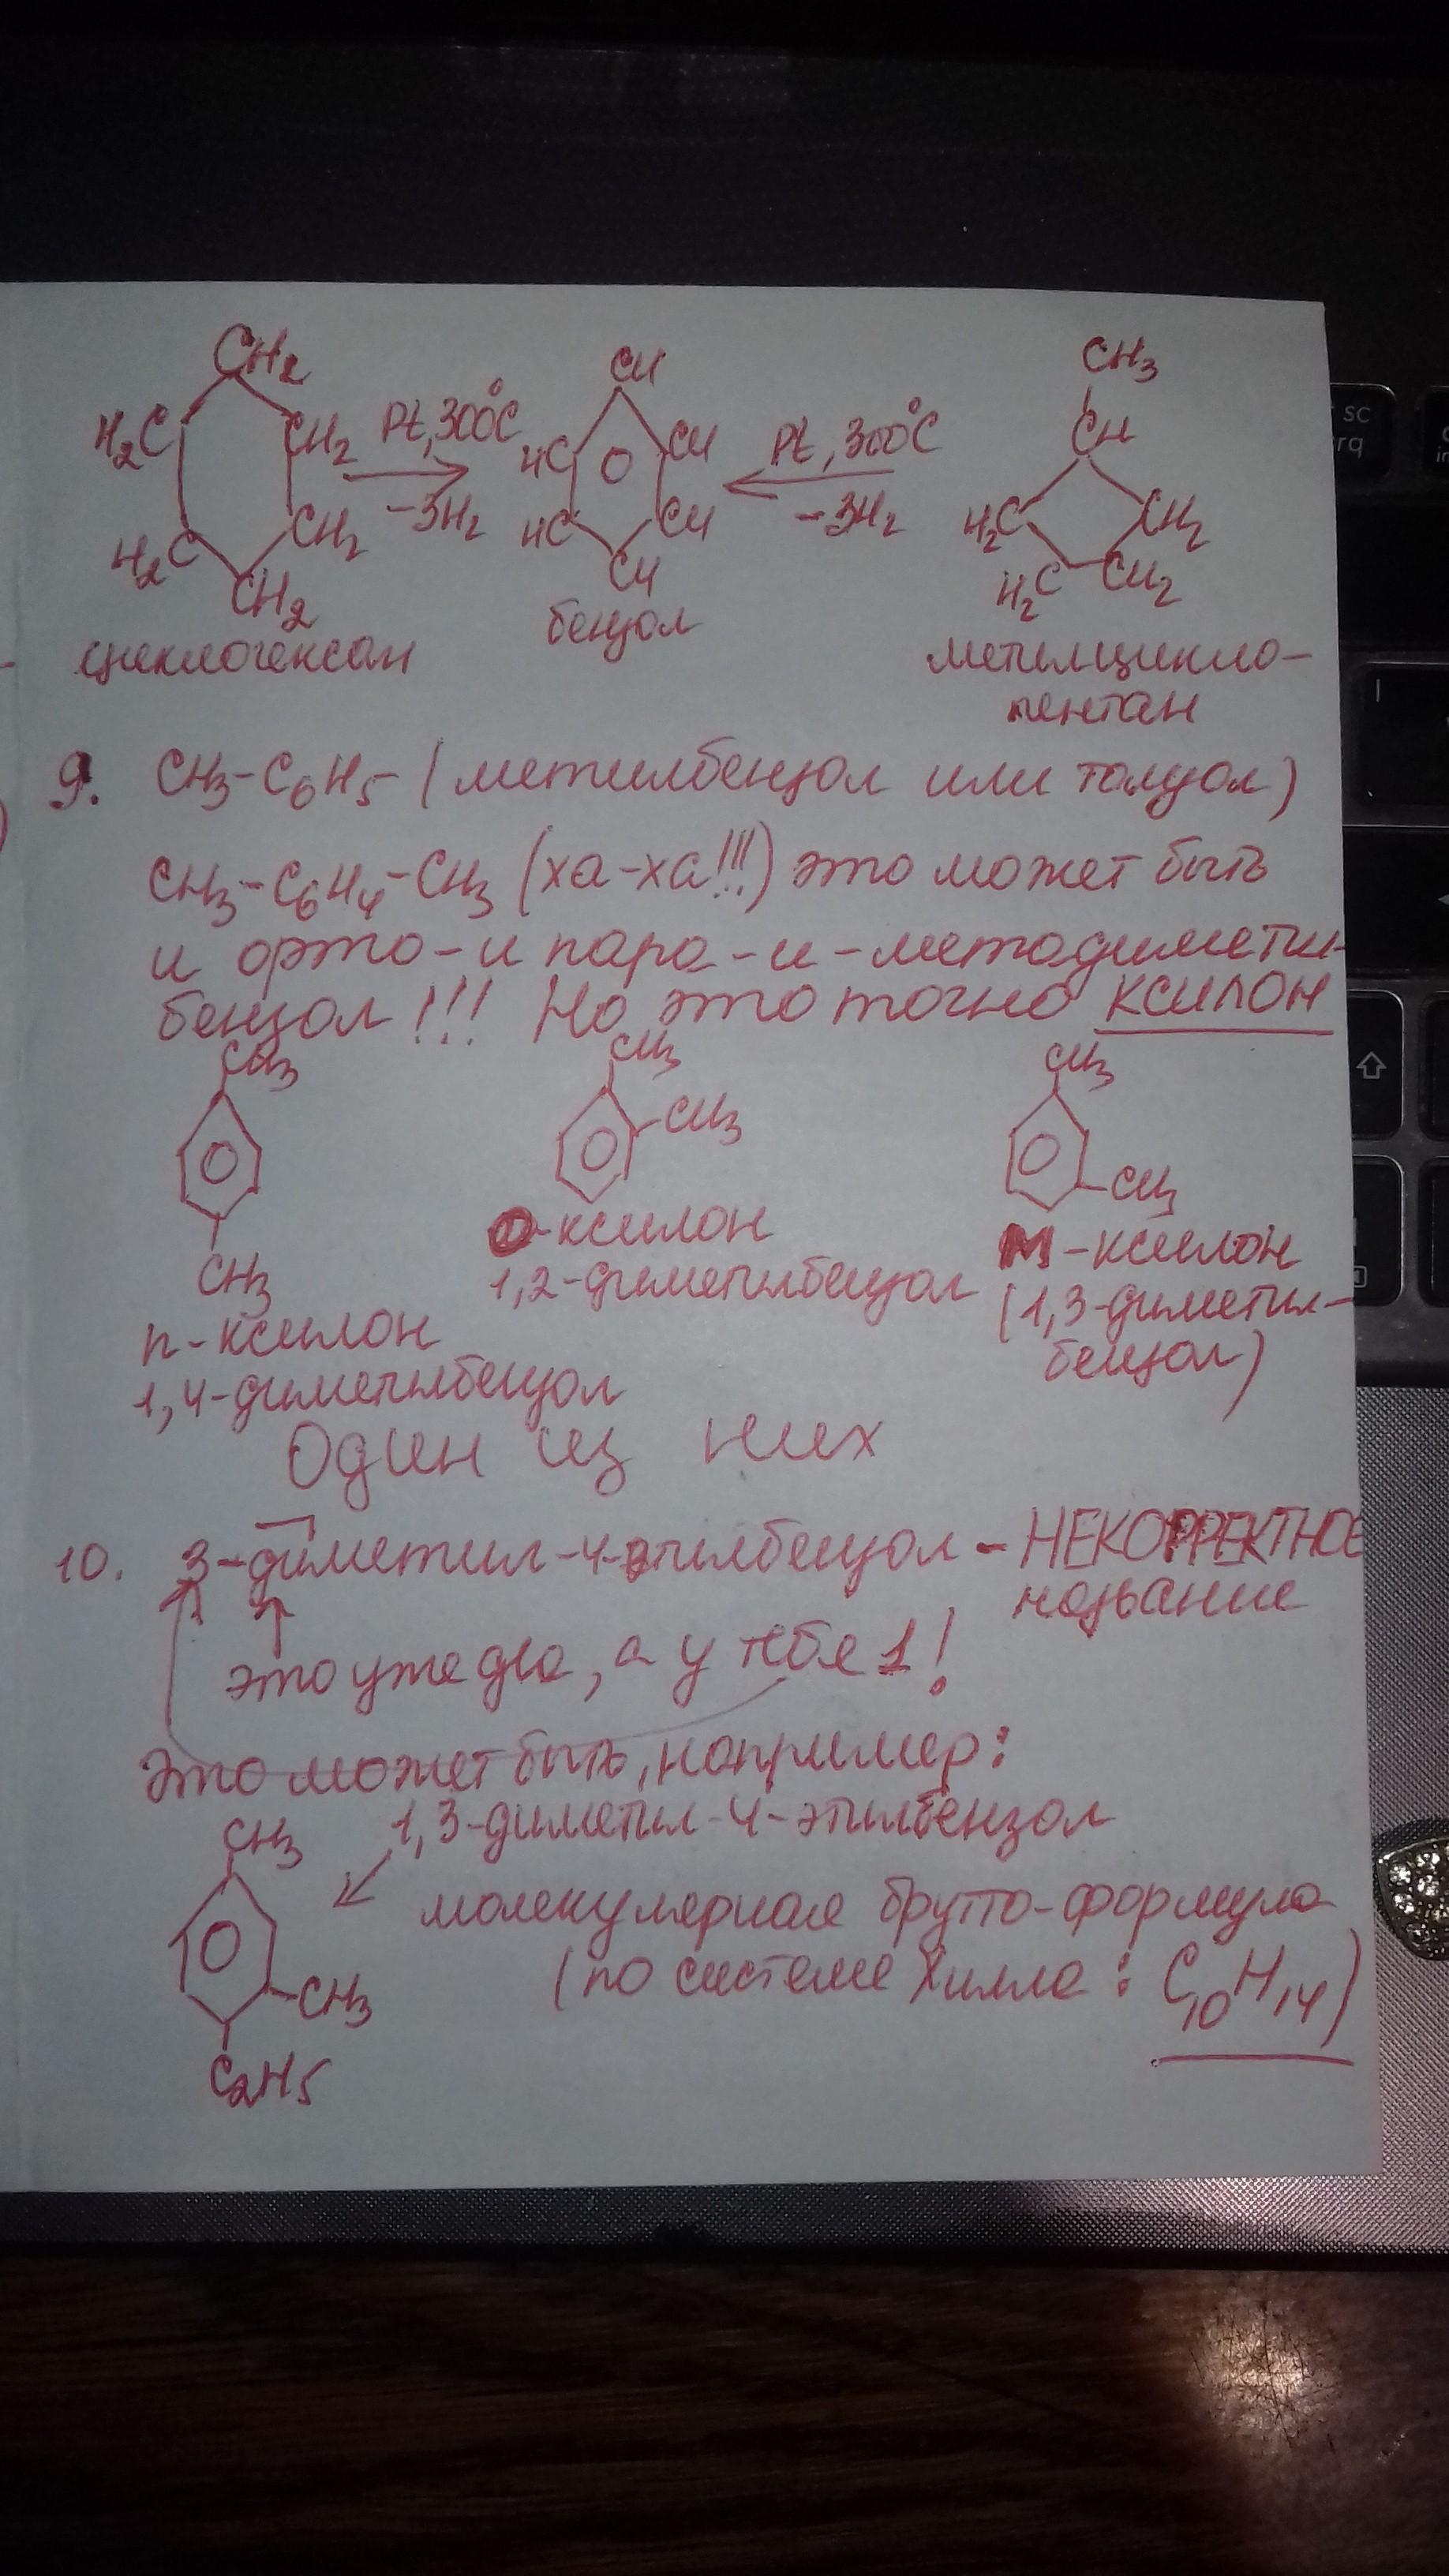 CH2
H2C CH2
H2C CH2
CH2
Pt, 300°C
-3H2
CH
HC CH
HC CH
CH
Pt, 300°C
-3H2
CH3
CH
H2C CH2
H2C CH2
циклогексан
бензол
метилцикло-
пентан
9. CH3-C6H5 (метилбензол или толуол)
CH3-C6H4-CH3 (ха-ха!!!) это может быть
и орто- и пара-и-метадимети-
бензол!!! Но это точно ксилон
CH3
CH3
п-ксилон
1,4-диметилбензол
CH3
-CH3
О-ксилон
1,2-диметилбензол
CH3
-CH3
М-ксилон
(1,3-диметил-
бензол)
Один из них
10. 3-диметил-4-этилбензол - НЕКОРРЕКТНОЕ
название
это уже два, а у тебя 1!
Это может быть, например:
1,3-диметил-4-этилбензол
CH3
-CH3
C2H5
молекулярная брутто-формула
(по системе Хилла: C10H14)
sc
rq